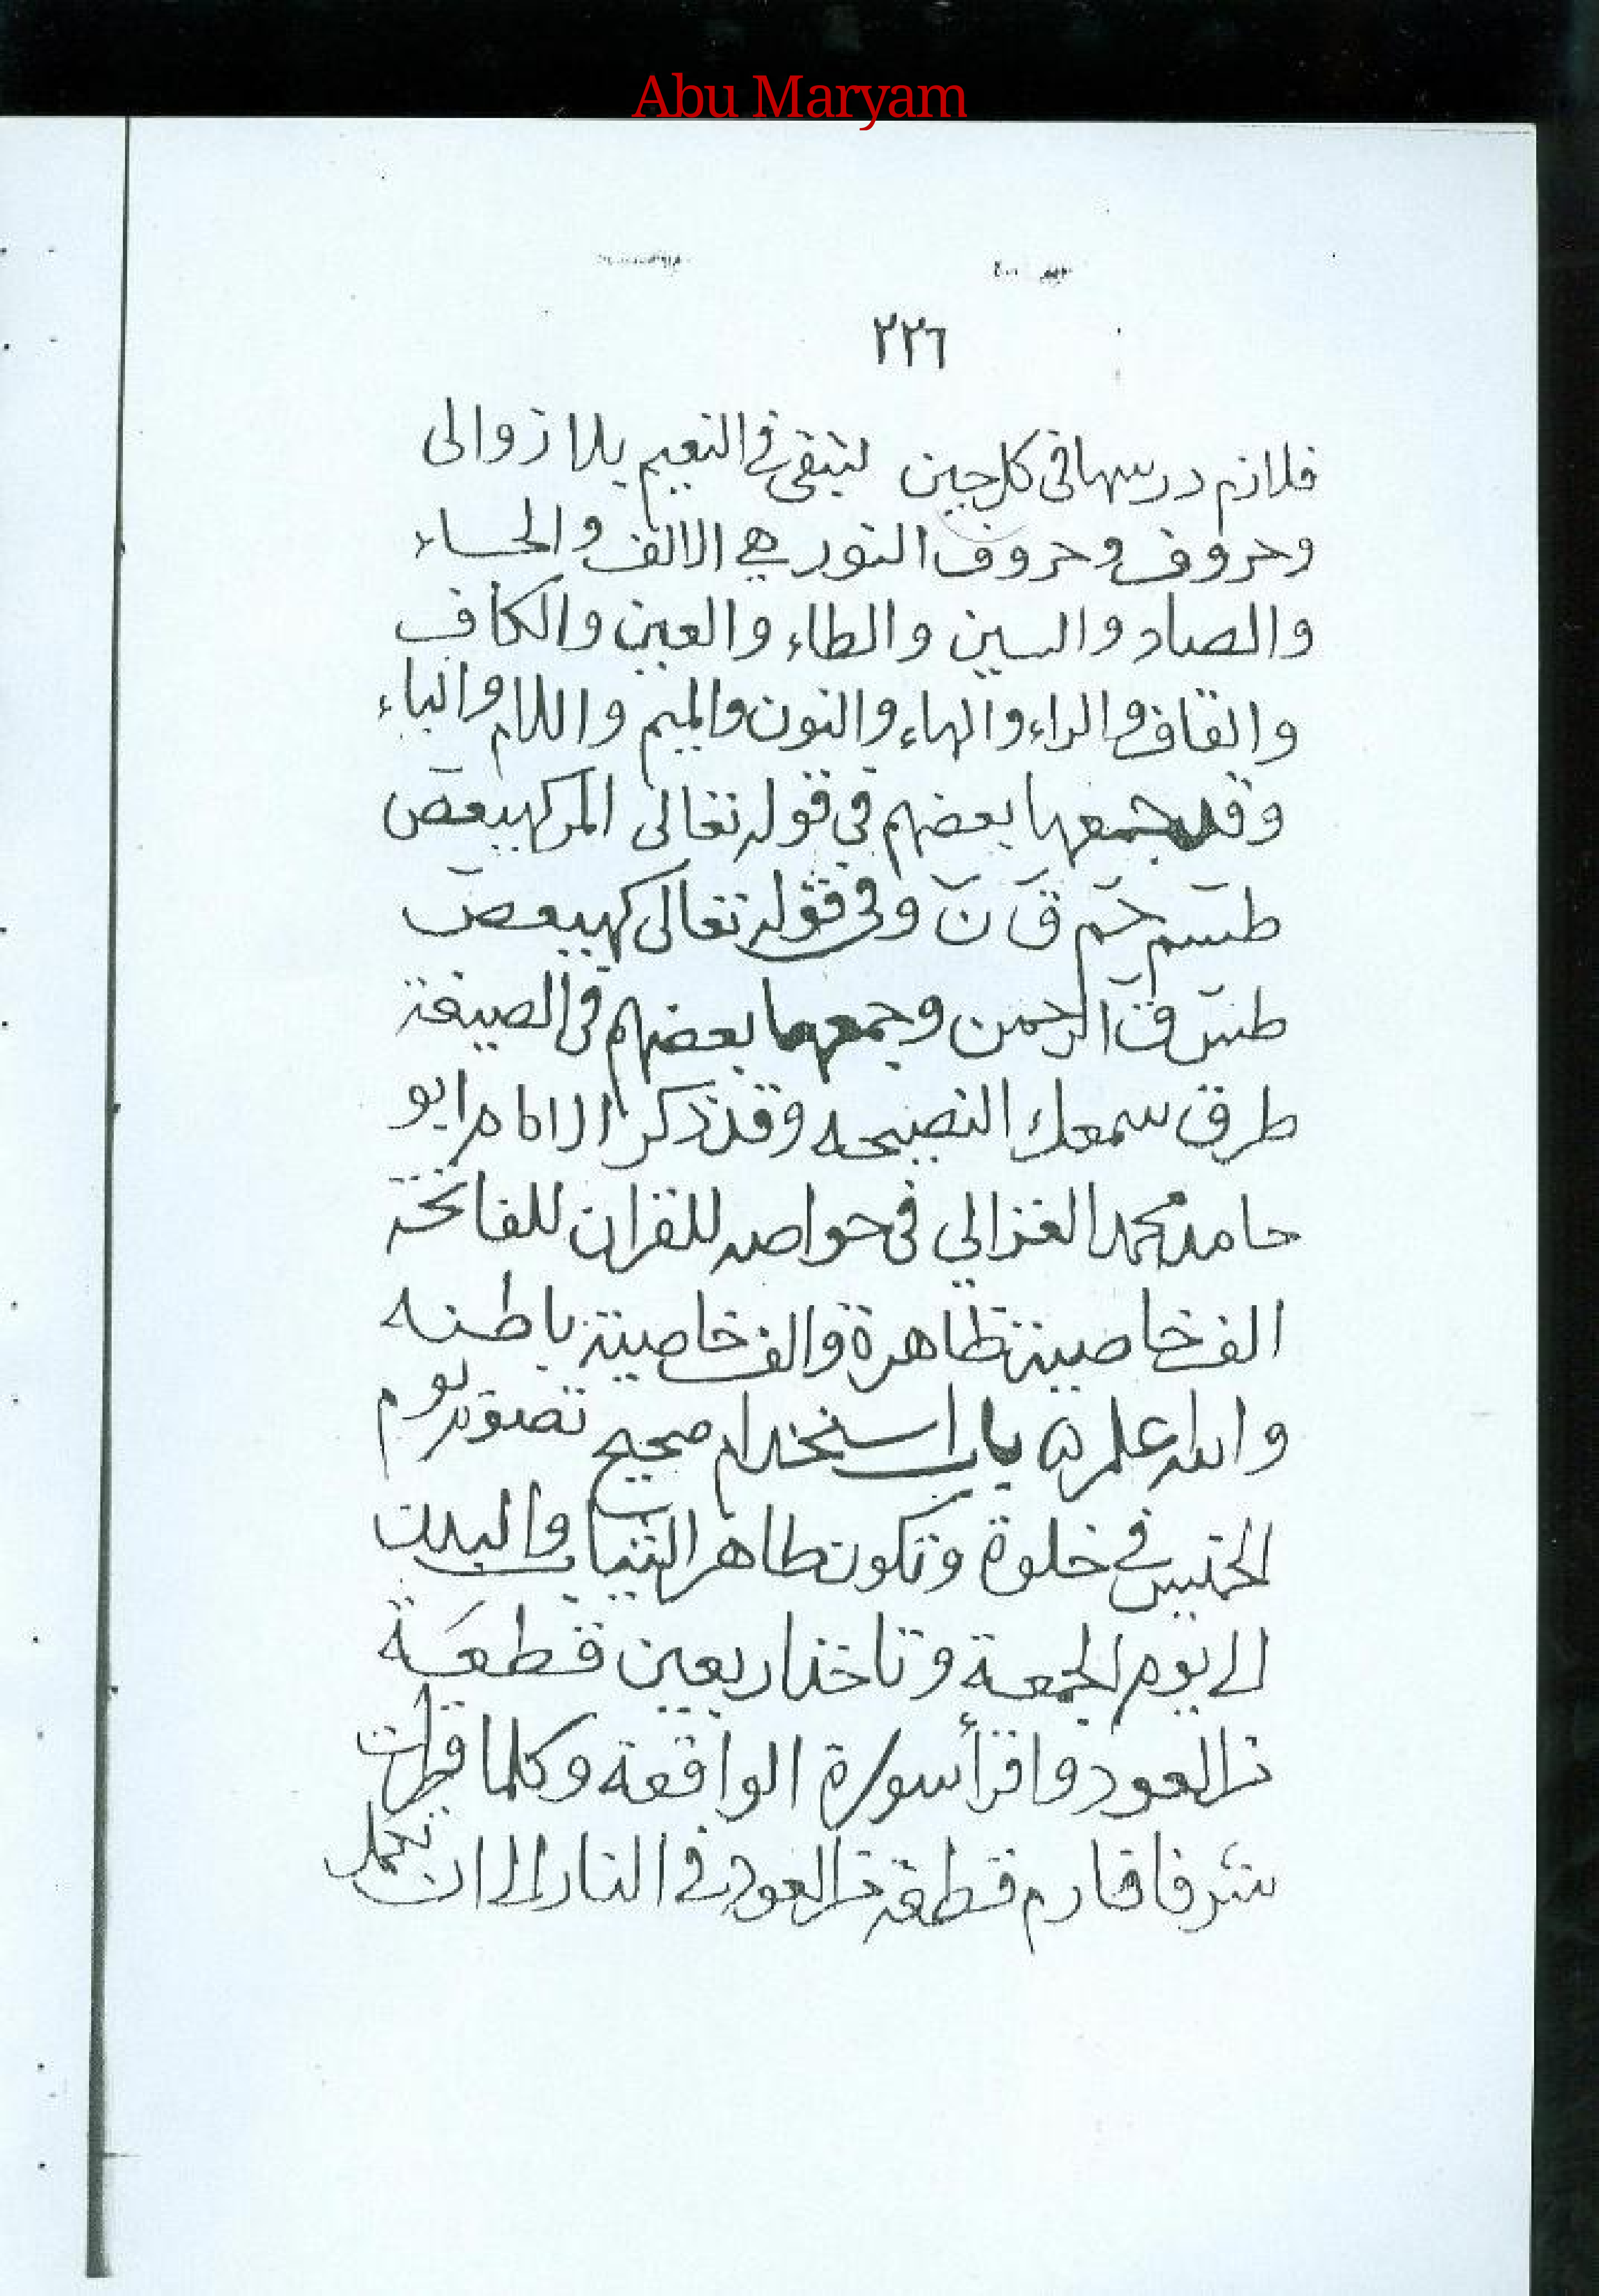 Abu Maryam
٢٢٦
فلازم درسها في كل حين لتبقى في النعيم بلا زوالى
وحروف وحروف النور هي الالف والحاء
والصاد والسين والطاء والعين والكاف
والقاف والراء والهاء والنون والميم واللام والياء
وقد جمعها بعضهم في قوله تعالى المر كهيعص
طسم حم ق ن وفي قوله تعالى كهيعص
طس ق الرحمن وجمعها بعضهم في الصيغة
طرق سمعك النصيحه وقد ذكر الامام ابو
حامد محمد الغزالي في حواصه للقران للفاتحة
الف خاصية ظاهرة والف خاصية باطنه
والله اعلم باب استخدام صحيح تصوم يوم
الخميس في خلوة وتكون طاهر الثياب والبدن
الى يوم الجمعة وتاخذ اربعين قطعة
من العود واقرأ سورة الواقعة وكلما قرات
شرفا فارم قطعة من العود في النار الى ان تكمل